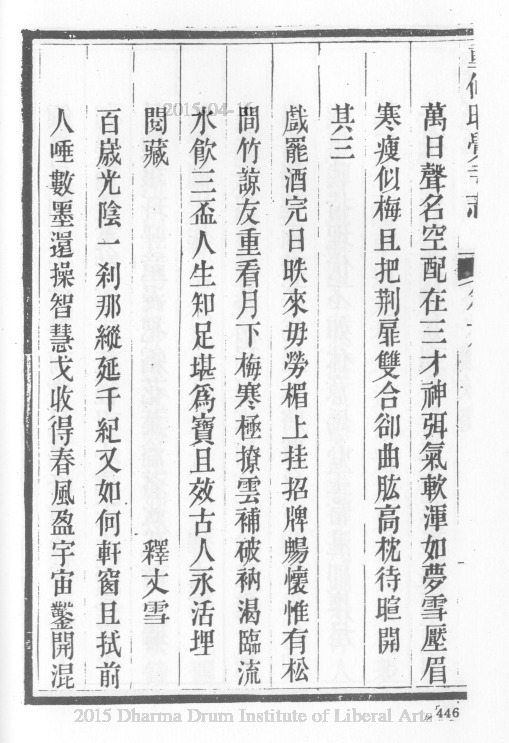 重修昭覺寺志
萬日聲名空配在三才神弭氣軟渾如夢雪壓眉
寒瘦似梅且把荆扉雙合卻曲肱高枕待暄開
其三
戲罷酒完日昳來毋勞楣上挂招牌暢懷惟有松
間竹諒友重看月下梅寒極撩雲補破衲渴臨流
水飲三盃人生知足堪爲寶且效古人永活埋
閱藏 釋丈雪
百歲光陰一刹那縱延千紀又如何軒窗且拭前
人唾數墨還操智慧戈收得春風盈宇宙鑿開混
2015-04-16
2015 Dharma Drum Institute of Liberal Arts
446